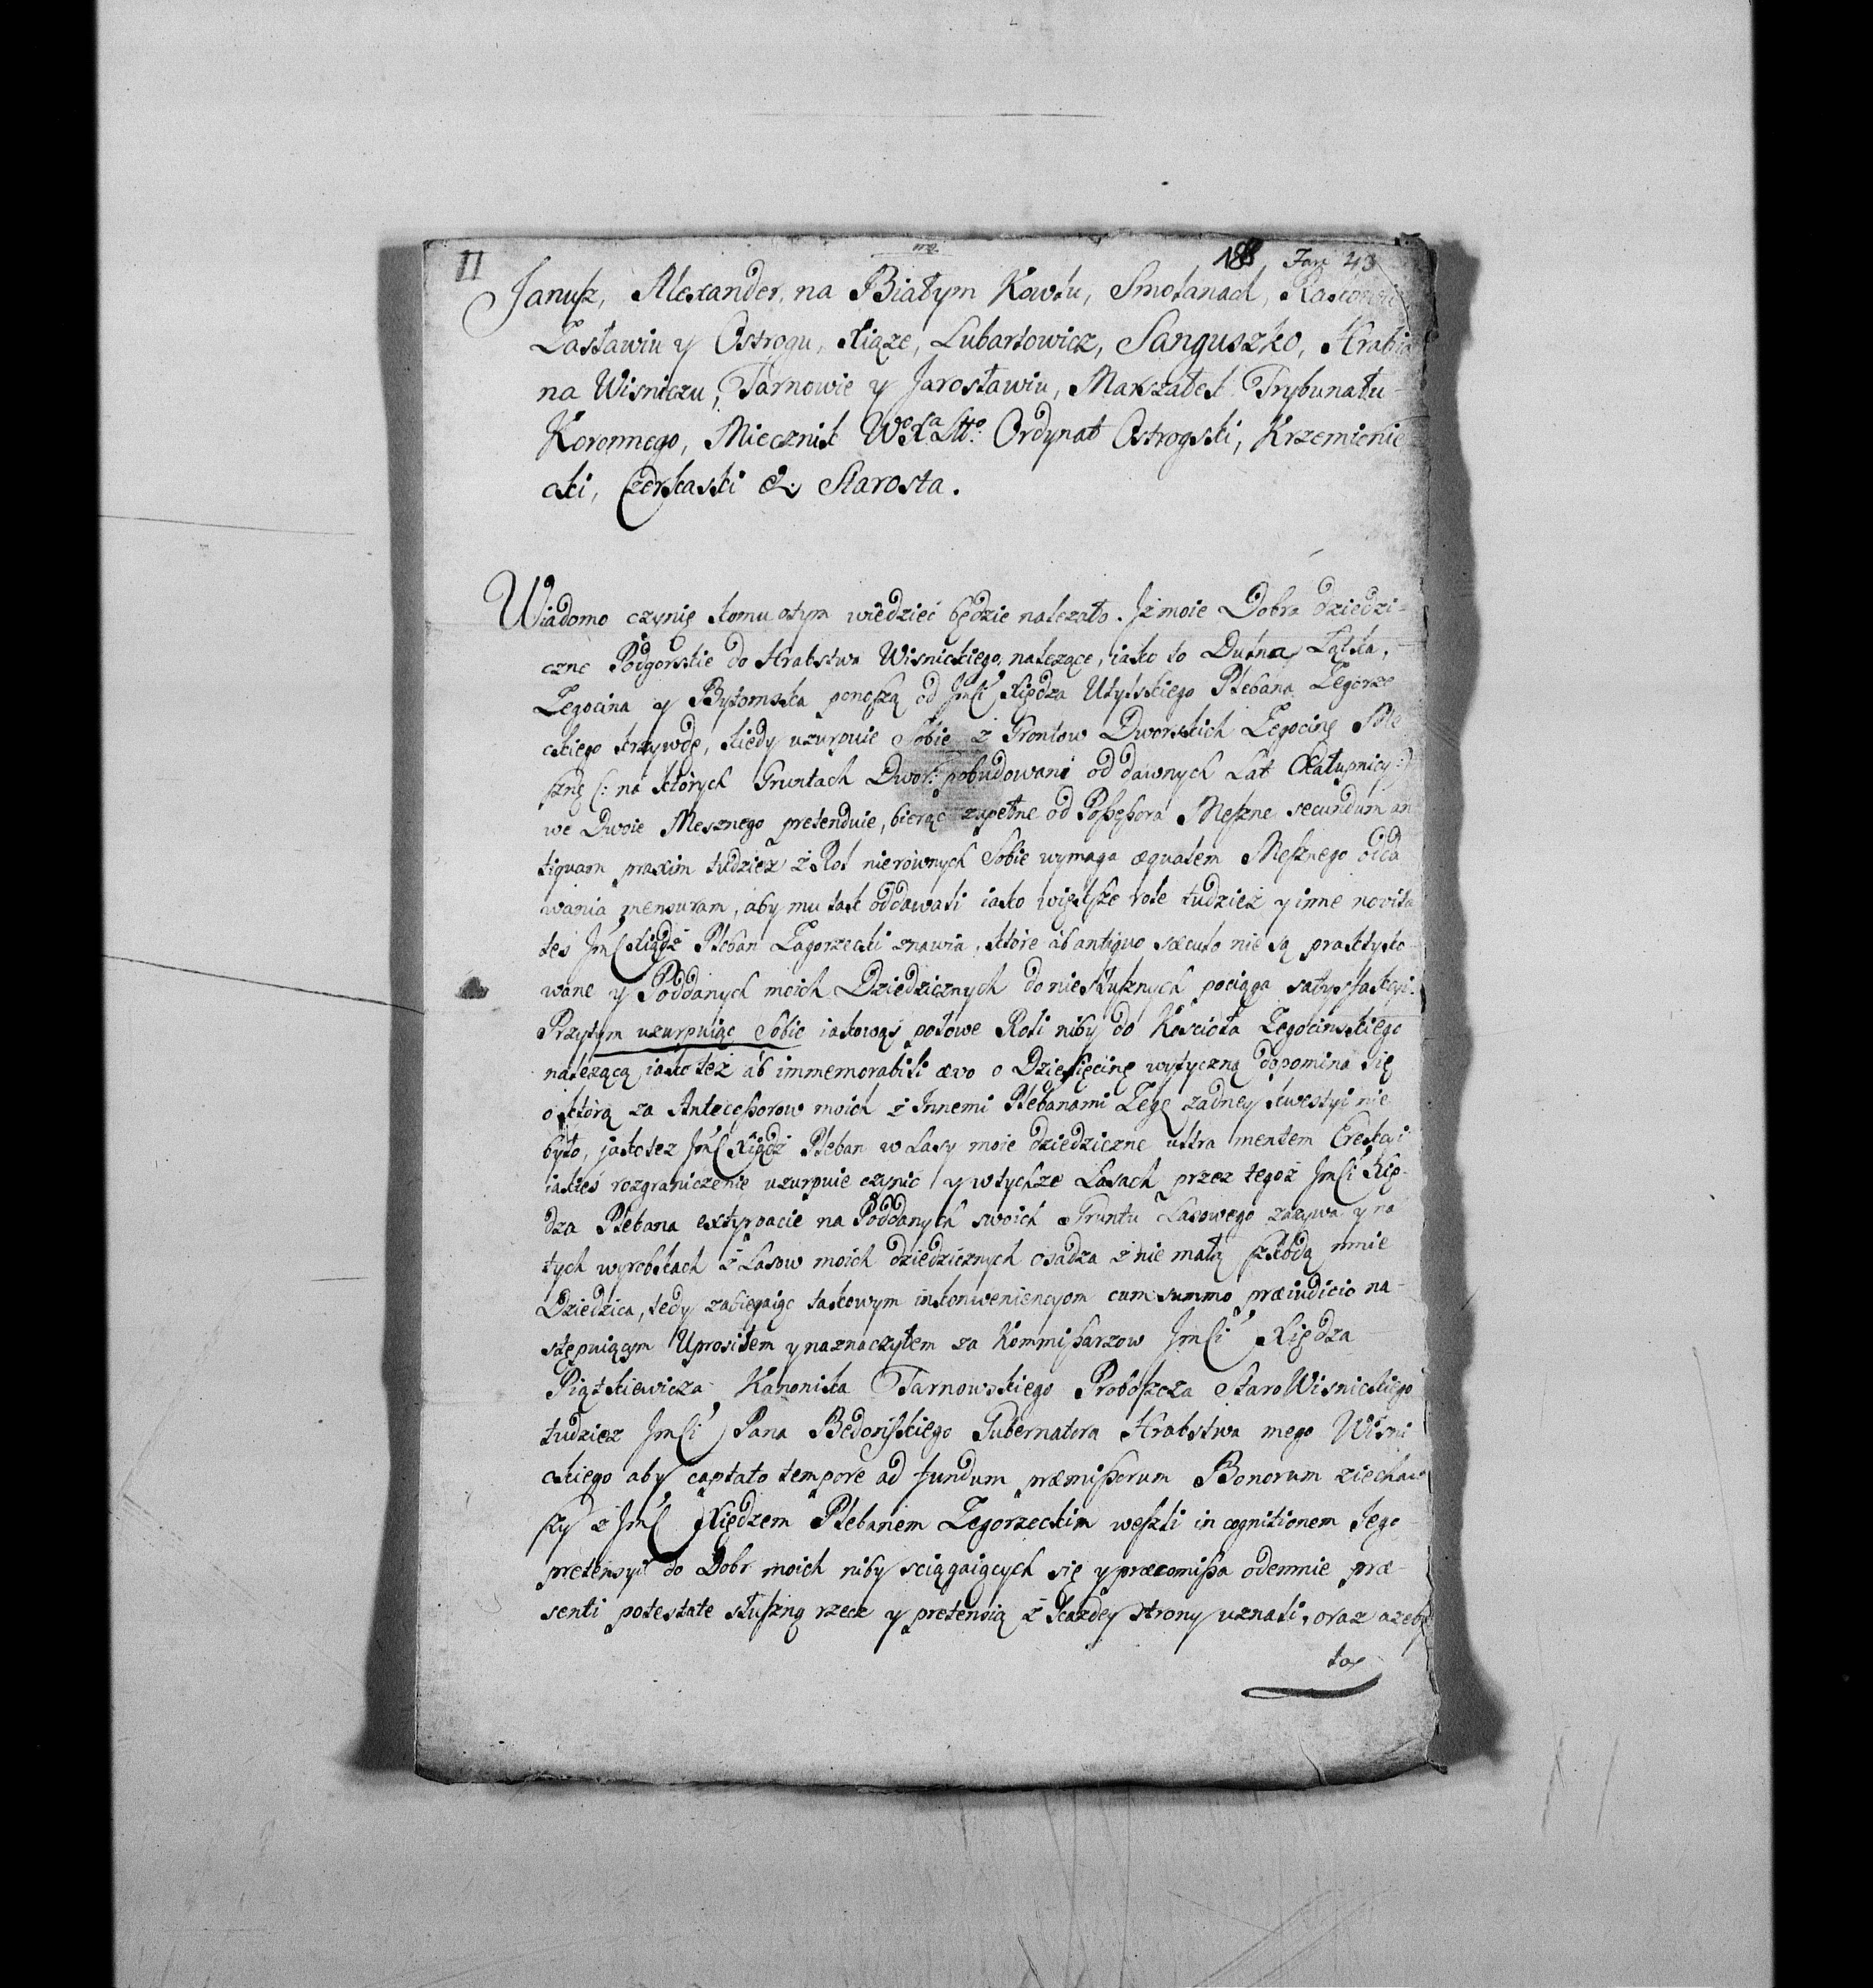 II
188 Fasc 43
Janusz, Alexander, na Białym Kowlu, Smolanach, Raszkowie
Zasławiu y Ostrogu, Xiąże, Lubartowicz, Sanguszko, Hrabia
na Wisniczu, Tarnowie y Jarosławiu, Marszałek Trybunału
Koronnego, Miecznik Wo Xa Litto: Ordynat Ostrogski, Krzemienie
cki, Czerkaski &: Starosta.
Wiadomo czynię komu otym wiedzieć będzie nalezało. Iż moie Dobra dziedzi=
czne Podgorskie do Hrabstwa Wisnickiego nalezące, iako to Duląa Łąkta,
Zegocina y Bytomska ponoszą od Jmci Xiędza Ulyskiego Plebana Zegorze
ckiego krzywdę, kiedy uzurpuie sobie z Grontow Dworskich Zegocinę Ple
sznę (: na których Gruntach Dwor: pobudowani od dawnych Lat Chałupnicy :)
we Dwoie Mesznego pretenduie, bierąc zupełne od Poßeßora Meszne secundum an
tiquam praxim tudziez z Rol nierównych sobie wymaga æqualem Mesznego odda
wania mensuram, aby mu tak oddawali iako większe role tudziez y inne novita
tes Jmc Xiądz Pleban Zagorzecki znawia, które ab antiquo sæculo nie są praktyko
wane y Poddanych moich Dziedzicznych do niesłusznych pociąga satysfakcyi.
Przytym uzurpuiąc sobie iakowąś połowe Roli niby do Koscioła Zegocinskiego
nalezącą iako też ab immemorabili ævo o Dziesięcinę wytyczną dopomina się
o którą za Anteceßorow moich z Innemi Plebanami Zegę zadney kwestyi nie
było, jakotez Jmc Xiądz Pleban w Lasy moie dziedziczne ultra mentem Erekcyi
iakieś rozgraniczenie uzurpuie czynić y wtychze Lasach przez tegoż Jmci Xię-
dza Plebana extyrpacie na Poddanych swoich Gruntu Lasowego zazywa y na
tych wyrobkach z Lasow moich dziedzicznych osadza z nie małą szkodą mnie
Dziedzica, tedy zabiegaiąc takowym inkonweniencyom cum summo præiudicio na-
stępuiącym Uprosiłem y naznaczyłem za Kommißarzow Jmci Xiędza
Piątkiewicza Kanonika Tarnowskiego Proboszcza StaroWisnickiego
tudziez Jmci Pana Bedońskiego Gubernatora Hrabstwa mego Wisni
ckiego aby captato tempore ad fundum præmißorum Bonorum ziechaw
szy z Jmc Xiędzem Plebanem Zegorzeckim weszli in cognitionem Jego
pretensyi do Dobr moich niby sciągaiących się y præcomißa odemnie præ-
senti potestate słuszną rzecz y pretensią z każdey strony uznali, oraz azeby
ta